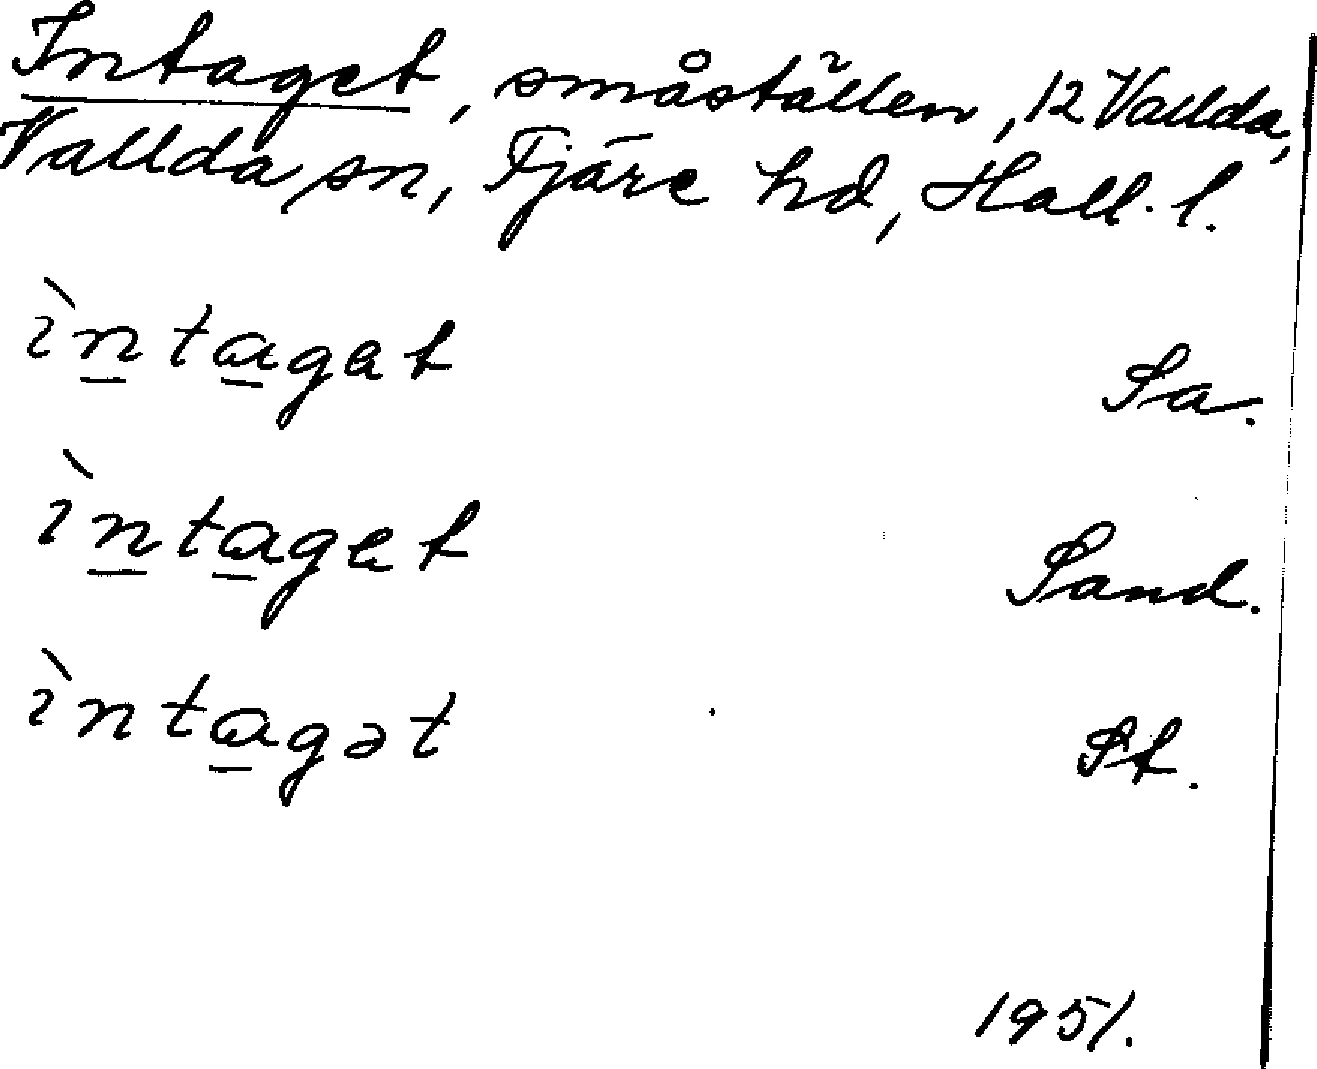 Intaget, småställen, 12 Vallda,
Vallda sn, Fjäre hd, Hall. l.
ìn̲ta̲gət Sa.
ìn̲ta̲get Sand.
ìnta̲gət St.
1951.